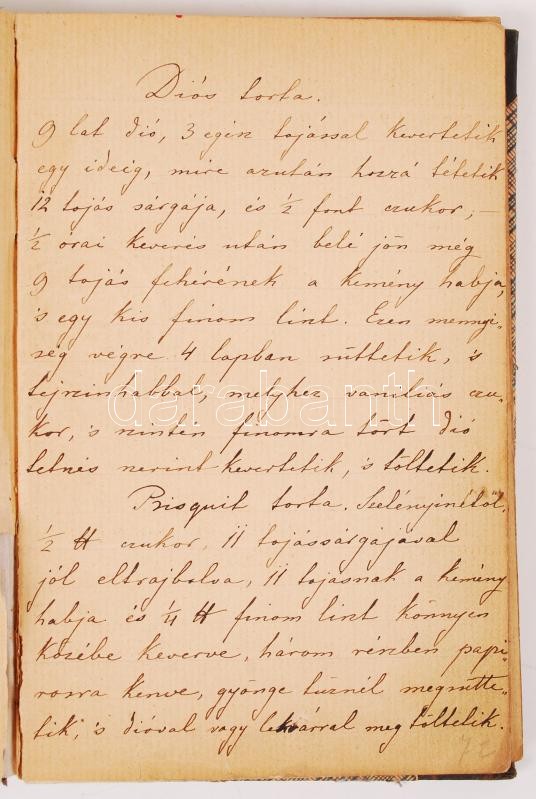 Diós torta.
9 lat dió, 3 egész tojással kevertetik
egy ideig, mire azután hozzá tétetik
12 tojás sárgája, és ½ font czukor, –
½ órai keverés után belé jön még
9 tojás fehérének a kemény habja,
's egy kis finom liszt. Ezen mennyi-
ség végre 4 lapban süttetik, 's
tejszinhabbal, melyhez vaniliás czu-
kor, 's szintén finomra tört dió
tetszés szerint kevertetik, 's töltetik.
Prisquit torta. Szelényinétől.
½ ℔ czukor, 11 tojássárgájával
jól eltrajbolva, 11 tojásnak a kemény
habja és ¼ ℔ finom liszt könnyen
közébe keverve, három részben papi-
rosra kenve, gyönge tűznél megsütte-
tik, 's dióval vagy lekvárral meg töltetik.
72
darabanth